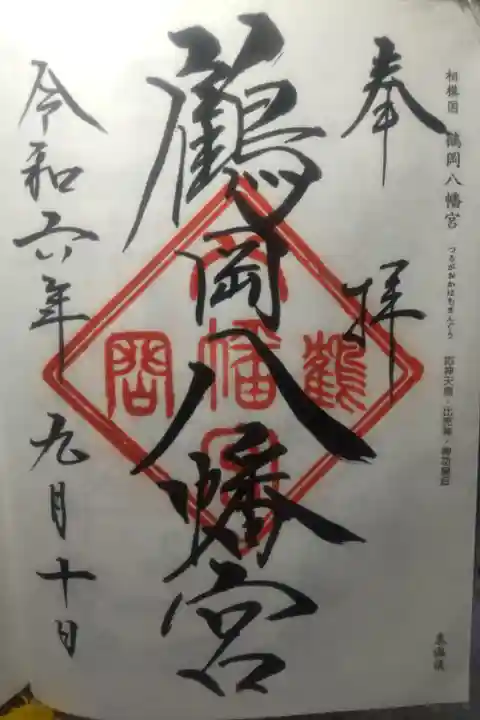 相模国 鶴岡八幡宮 つるがおかはちまんぐう 応神天皇・比売神・神功皇后
奉拝
鶴岡八幡宮
鶴岡八幡宮
令和六年九月十日